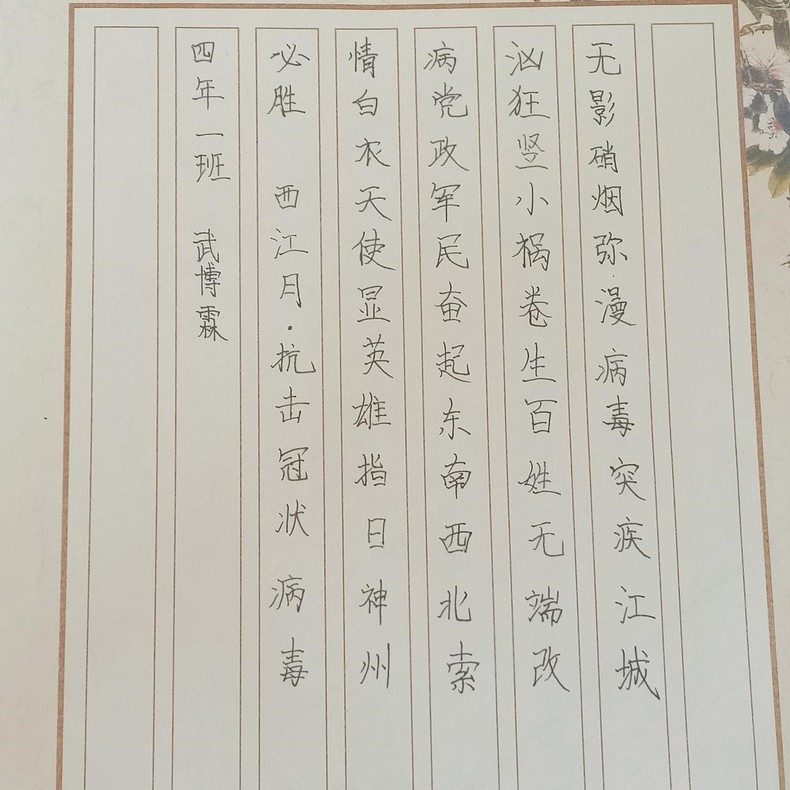 无影硝烟弥漫病毒突疾江城
汹狂竖小祸卷生百姓无端改
病党政军民奋起东南西北索
情白衣天使显英雄指日神州
必胜 西江月·抗击冠状病毒
四年一班 武博霖